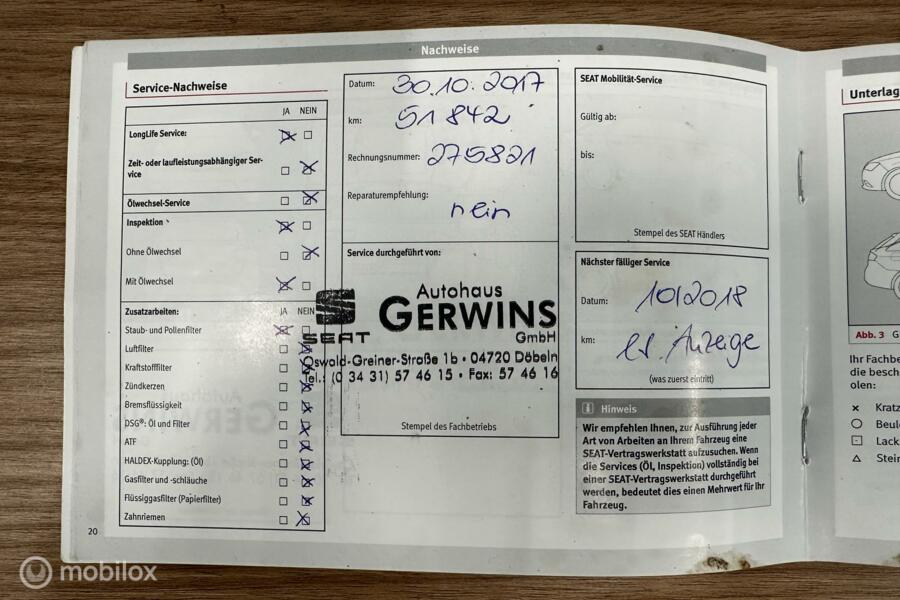 Nachweise
Service-Nachweise
JA NEIN
LongLife Service:
Zeit- oder laufleistungsabhängiger Ser-
vice
Ölwechsel-Service
Inspektion
Ohne Ölwechsel
Mit Ölwechsel
Zusatzarbeiten: JA NEIN
Staub- und Pollenfilter
Luftfilter
Kraftstofffilter
Zündkerzen
Bremsflüssigkeit
DSG®: Öl und Filter
ATF
HALDEX-Kupplung: (Öl)
Gasfilter und -schläuche
Flüssiggasfilter (Papierfilter)
Zahnriemen
20
Datum: 30.10.2017
km: 51 842
Rechnungsnummer: 275821
Reparaturempfehlung:
nein
Service durchgeführt von:
Autohaus
GERWINS
SEAT GmbH
Oswald-Greiner-Straße 1b • 04720 Döbeln
Tel.: (0 34 31) 57 46 15 • Fax: 57 46 16
Stempel des Fachbetriebs
SEAT Mobilität-Service
Gültig ab:
bis:
Stempel des SEAT Händlers
Nächster fälliger Service
Datum: 10/2018
km: lt. Anzeige
(was zuerst eintritt)
i Hinweis
Wir empfehlen Ihnen, zur Ausführung jeder
Art von Arbeiten an Ihrem Fahrzeug eine
SEAT-Vertragswerkstatt aufzusuchen. Wenn
die Services (Öl, Inspektion) vollständig bei
einer SEAT-Vertragswerkstatt durchgeführt
werden, bedeutet dies einen Mehrwert für Ihr
Fahrzeug.
Unterlag
Abb. 3 G
Ihr Fachbe
die besch
olen:
Kratz
Beule
Lack
Stein
mobilox